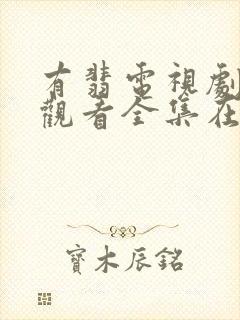 有翡電視劇
觀看全集在
寶木辰銘